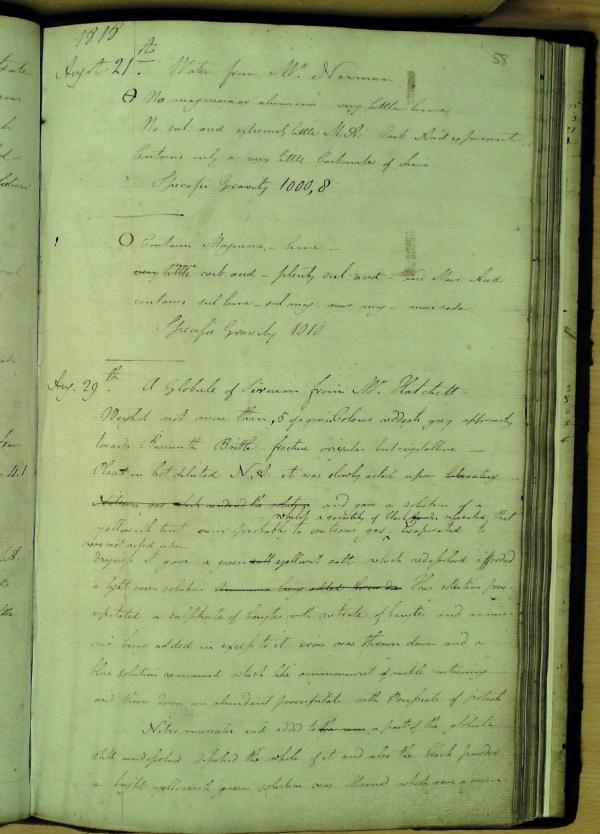 1818
58
Augst 21st. Water from Mr Newman
No magnesia or alumina very little lime
No sul: acid extremely little M.A. Carb Acid represent
Contains only a very little Carbonate of lime
Specific Gravity 1000,8
Contains Magnesia - lime -
very little more carb acid - plenty sul acid - and Mur Acid
contains sul lime - sul mag - mur mag - mur soda
Specific Gravity 1010
Aug. 29th. A Globule of from Mr Hatchett
Weighed not more than ,5 of a grain Colour reddish grey approaching
towards Bismuth Brittle fracture but crystalline -
Placed in hot diluted N.A. it was slowly acted upon
and gave a solution of a
whilst a quantity of black powder separated that
yellowish tint owing probably to nitrous gas. Evaporated to
was not acted upon
dryness it gave a green salt yellowish salt which redissolved afforded
a light green solution Ammonia being added threw do This solution prec
ipitated a sulphate of barytes with nitrate of barytes and ammo
nia being added in excess to it iron was thrown down and a
blue solution remained which like ammoniuret of nickle
acid threw down an abundant precipitate with Prussiate of potash
Nitro muriatic acid added to a part of the globule
still undissolved dissolved the whole of it and also the black powder
a bright yellowish green solution was obtained which gave a green